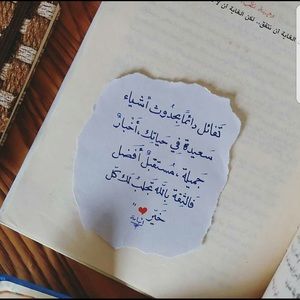 تفائل دائمًا بحدوث أشياء
سعيدة في حياتك، أخبارٌ
جميلة، مستقبلٌ أفضل
فالثقة بالله تجلب لك كل
خير ❤ "